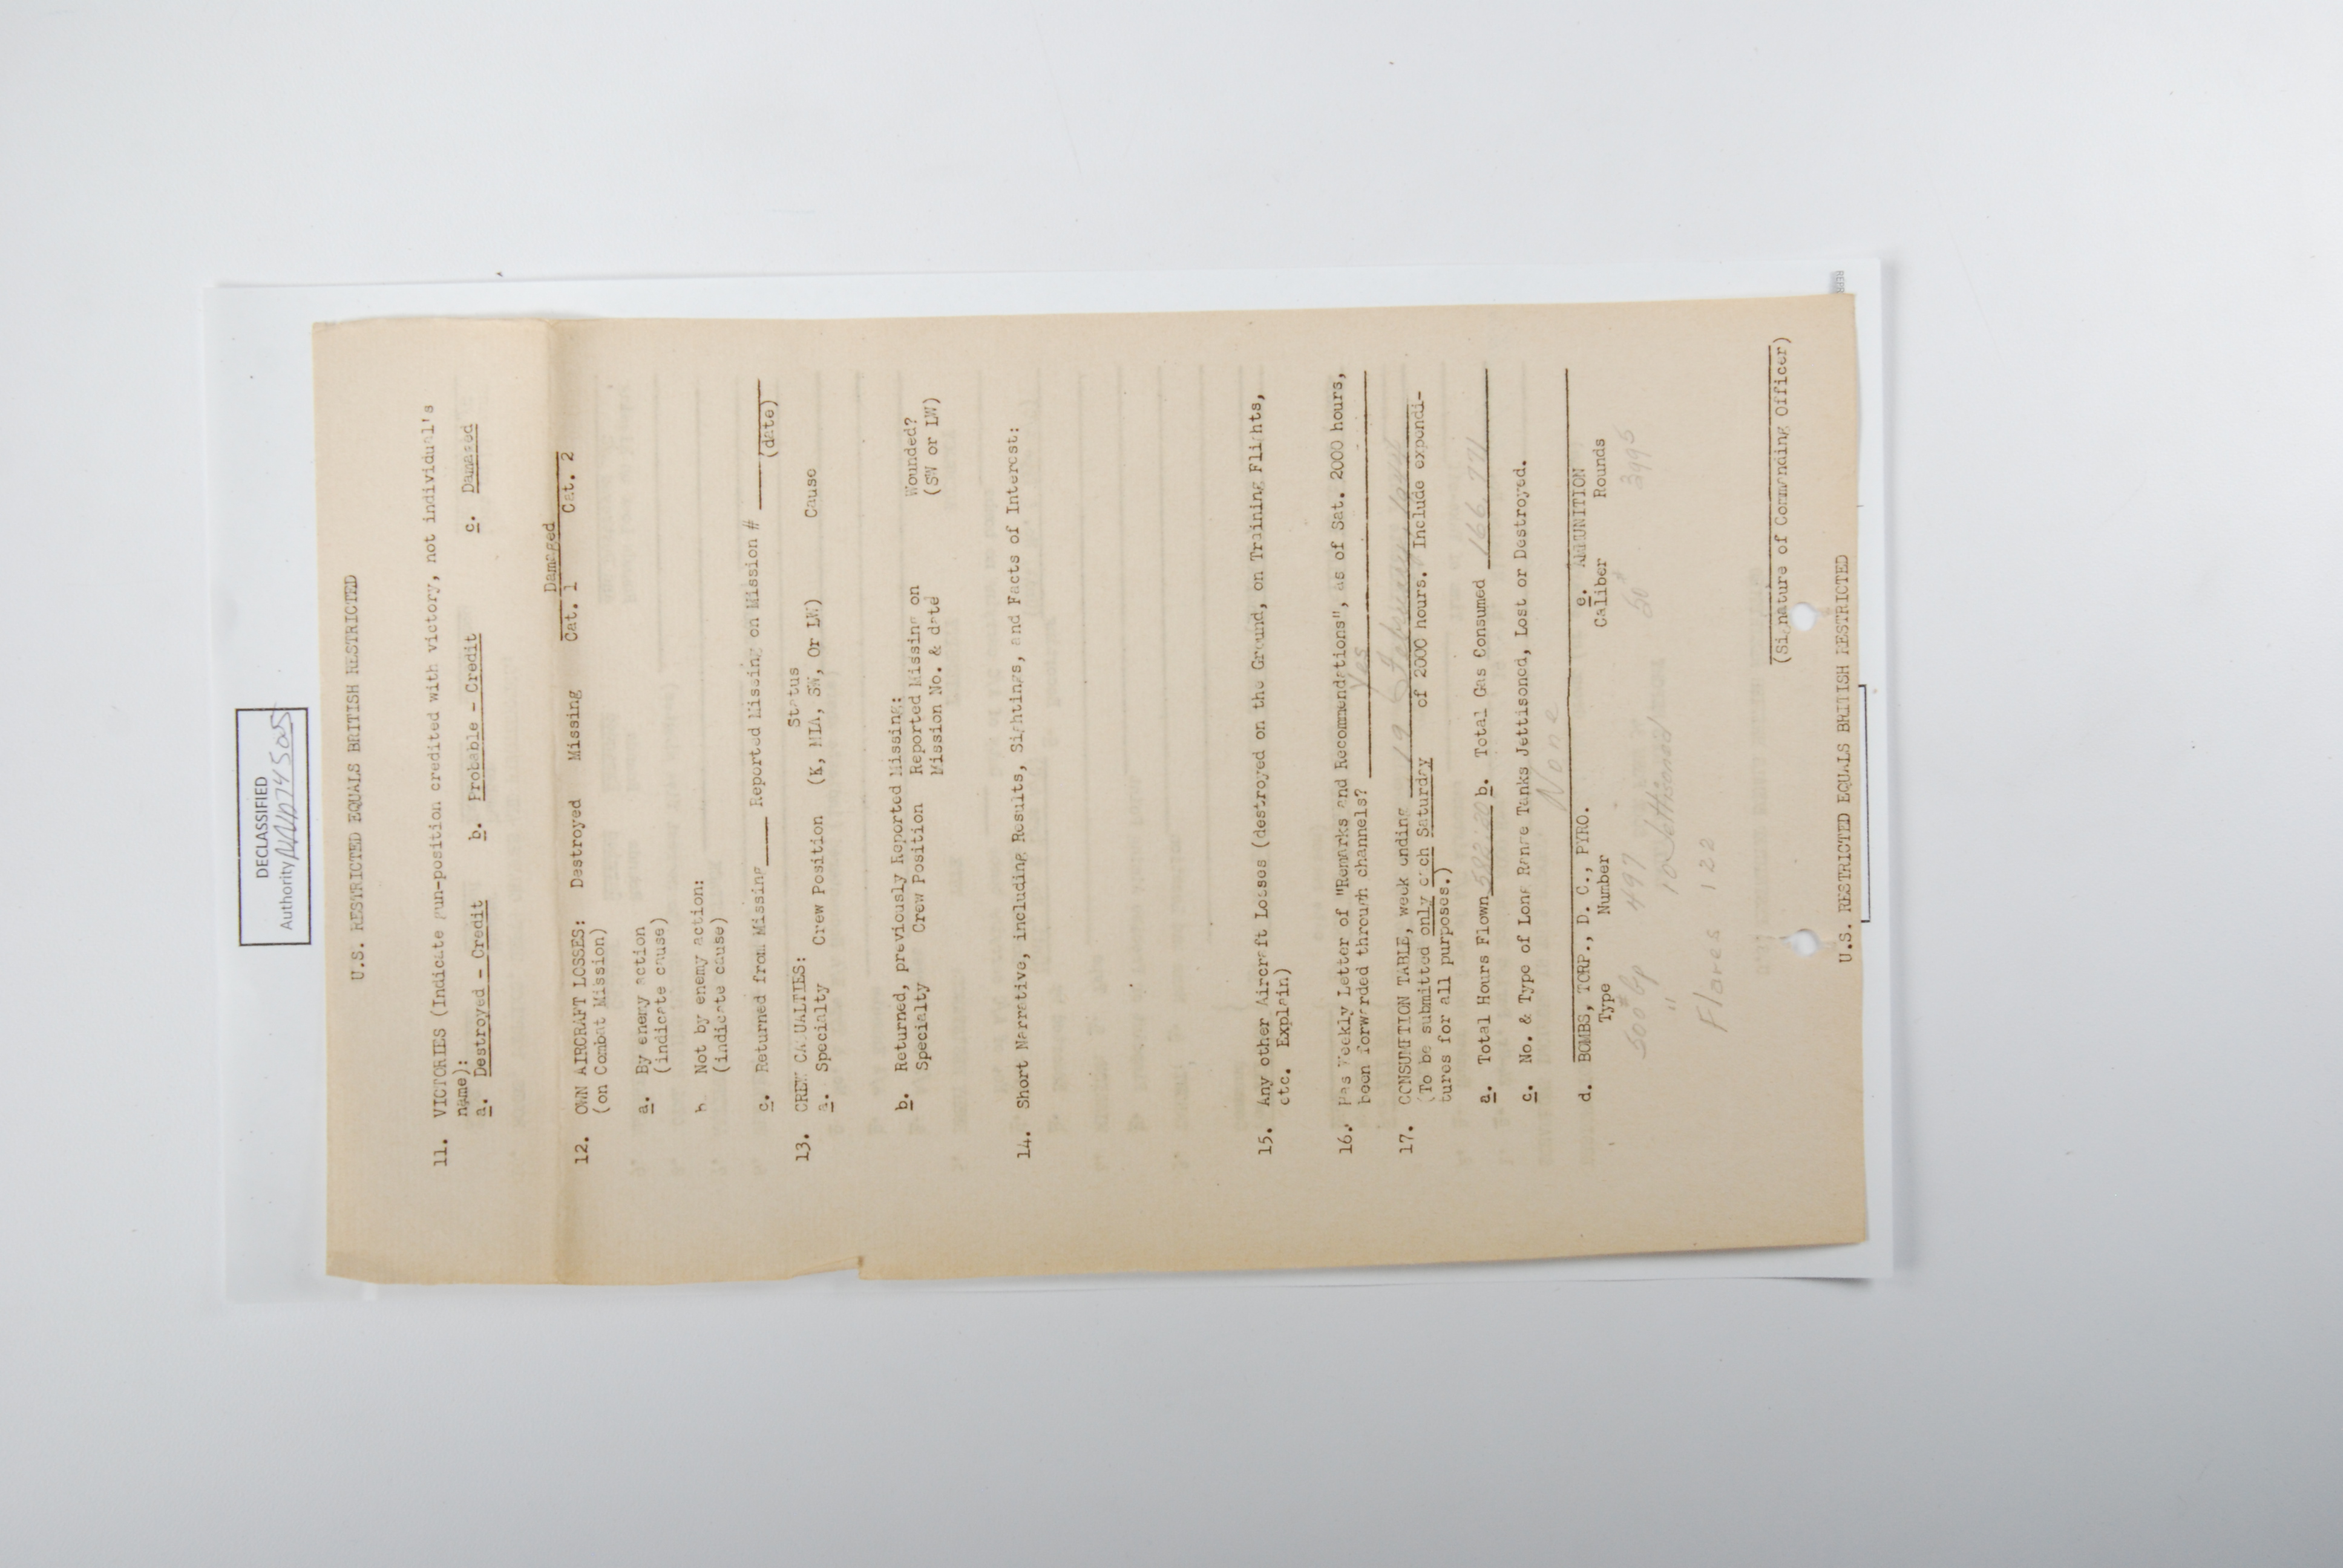 DECLASSIFIED
Authority NND 745005
U.S. RESTRICTED EQUALS BRITISH RESTRICTED
11. VICTORIES (Indicate gun-position credited with victory, not individual's
name):
a. Destroyed - Credit b. Probable - Credit c. Damaged
Damaged
12. OWN AIRCRAFT LOSSES: Destroyed Missing Cat. 1 Cat. 2
(on Combat Mission)
a. By enemy action
(indicate cause)
b. Not by enemy action:
(indicate cause)
c. Returned from Missing____ Reported Missing on Mission # ______
(date)
13. CREW CASUALTIES: Status
a. Specialty Crew Position (K, MIA, SW, Or LW) Cause
b. Returned, previously Reported Missing:
Specialty Crew Position Reported Missing on Wounded?
Mission No. & date (SW or LW)
14. Short Narrative, including Results, Sightings, and Facts of Interest:
15. Any other Aircraft Losses (destroyed on the Ground, on Training Flights,
etc. Explain)
16. Has Weekly Letter of "Remarks and Recommendations", as of Sat. 2000 hours,
been forwarded through channels? Yes
17. CONSUMPTION TABLE, week ending 19 February 1944
(To be submitted only each Saturday of 2000 hours. Include expendi-
tures for all purposes.)
a. Total Hours Flown 582:20 b. Total Gas Consumed 166,771
c. No. & Type of Long Range Tanks Jettisoned, Lost or Destroyed.
None
d. BOMBS, TORP., D. C., PYRO. e. AMMUNITION
Type Number Caliber Rounds
500# Gp 497 50 3995
" 10 Jettisoned
Flares 122
(Signature of Commanding Officer)
U.S. RESTRICTED EQUALS BRITISH RESTRICTED